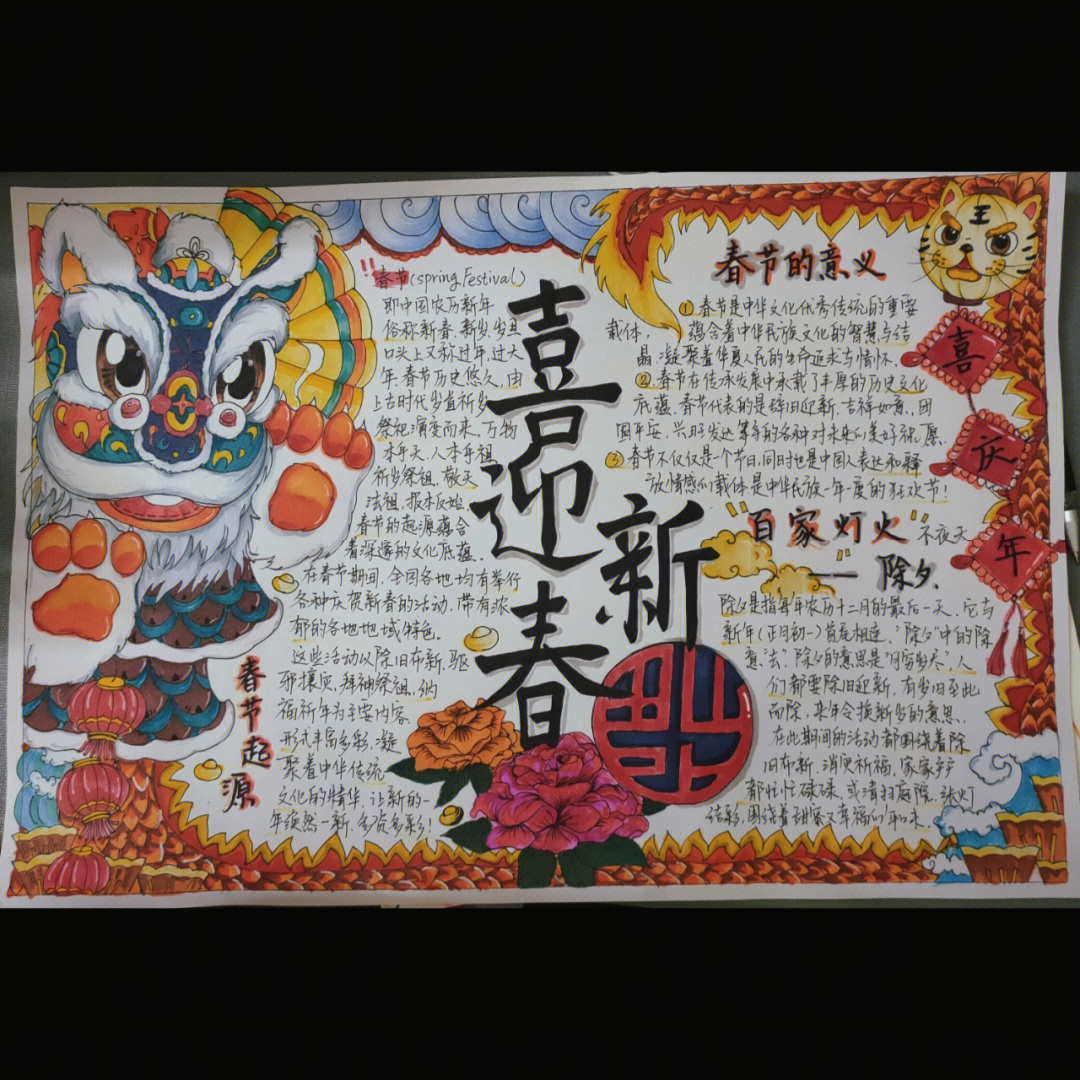 春节(spring Festival)
即中国农历新年
俗称新春、新岁、岁旦
口头上又称过年、过大
年、春节历史悠久,由
上古时代岁首祈岁
祭祀演变而来。万物
本乎天、人本乎祖
祈岁祭祖、敬天
法祖,报本反始
春节的起源蕴含
着深邃的文化底蕴。
在春节期间,全国各地均有举行
各种庆贺新春的活动,带有浓
郁的各地地域特色。
这些活动以除旧布新、驱
邪攘灾、拜神祭祖、纳
福祈年为主要内容
形式丰富多彩,凝
聚着中华传统
文化的精华,让新的一
年焕然一新,多姿多彩!
春节起源
喜迎春
新
春节的意义
①春节是中华文化优秀传统的重要
载体,蕴含着中华民族文化的智慧与结
晶,凝聚着华夏人民的生命追求与情怀。
②春节在传承发展中承载了丰厚的历史文化
底蕴、春节代表的是辞旧迎新、吉祥如意、团
圆平安、兴旺发达等年的各种对未来们美好祝愿
③春节不仅仅是一个节日,同时也是中国人表达和释
放情感们载体是中华民族一年一度的狂欢节!
百家灯火 不夜天
——除夕
除夕是指每年农历十二月的最后一天、它与
新年(正月初一)首尾相连。"除夕"中的除
意"去"除夕的意思是"月穷岁尽",人
们都要除旧迎新,有岁旧至此
而除,来年令换新岁的意思。
在此期间的活动都围绕着除
旧布新,消灾祈福,家家户户
都忙忙碌碌,或清扫庭院,张灯
结彩,围绕着甜蜜又幸福们年味。
王
喜
庆
年